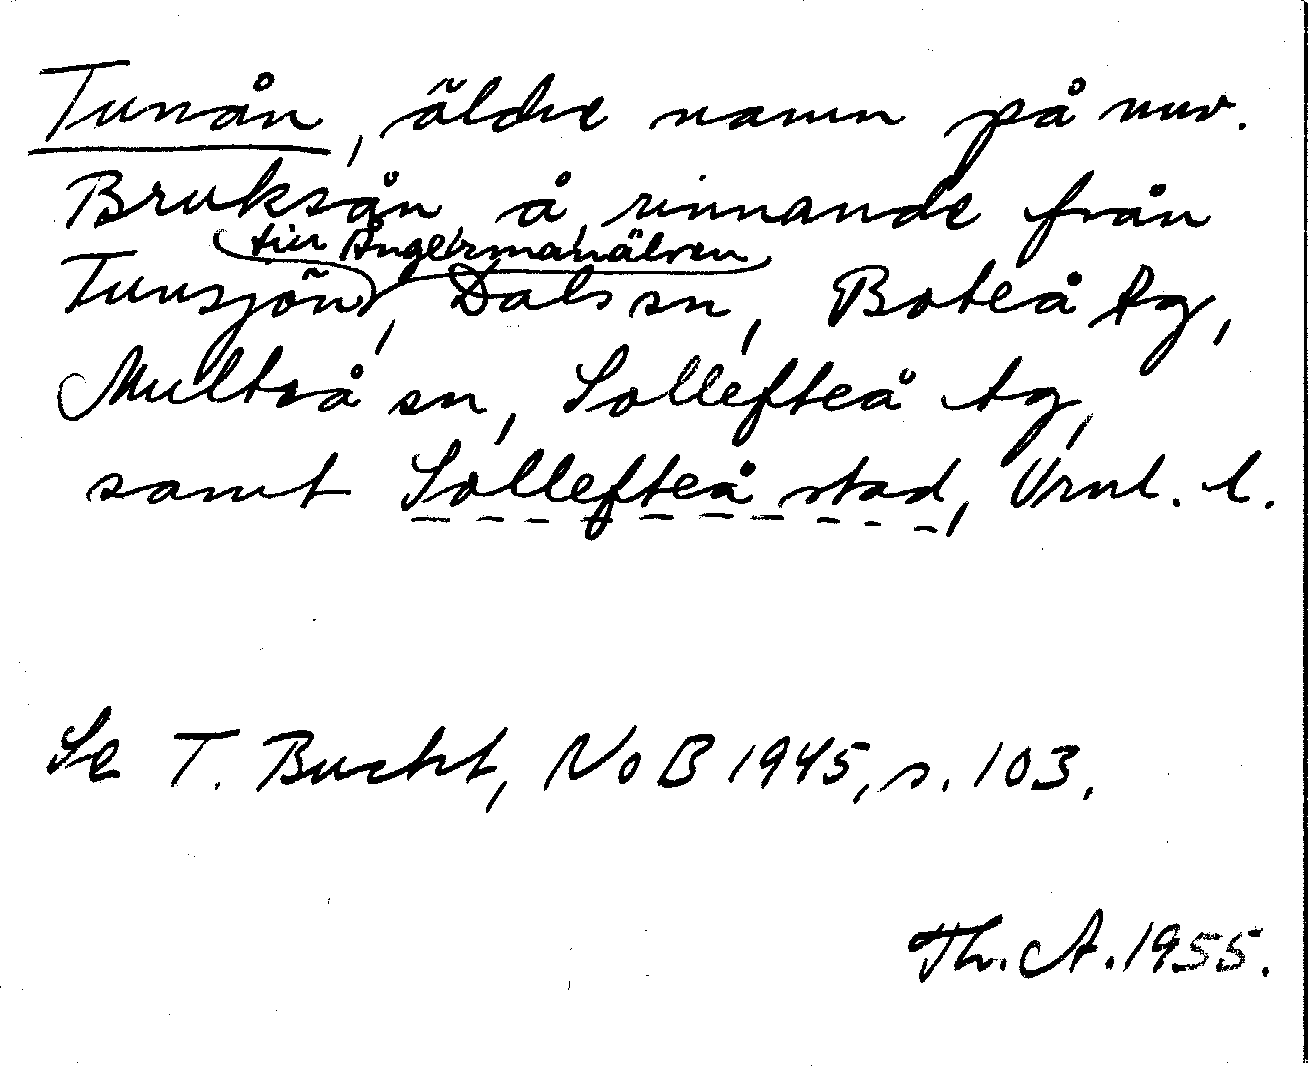 Tunån, äldre namn på nuv.
Bruksån å rinnande från
till Ångermanälven
Tunsjön, Dals sn, Boteå tg,
Multrå sn, Sollefteå tg,
samt Sollefteå stad, Vrnl. l.
Se T. Bucht, NoB 1945, s. 103.
Th. A. 1955.